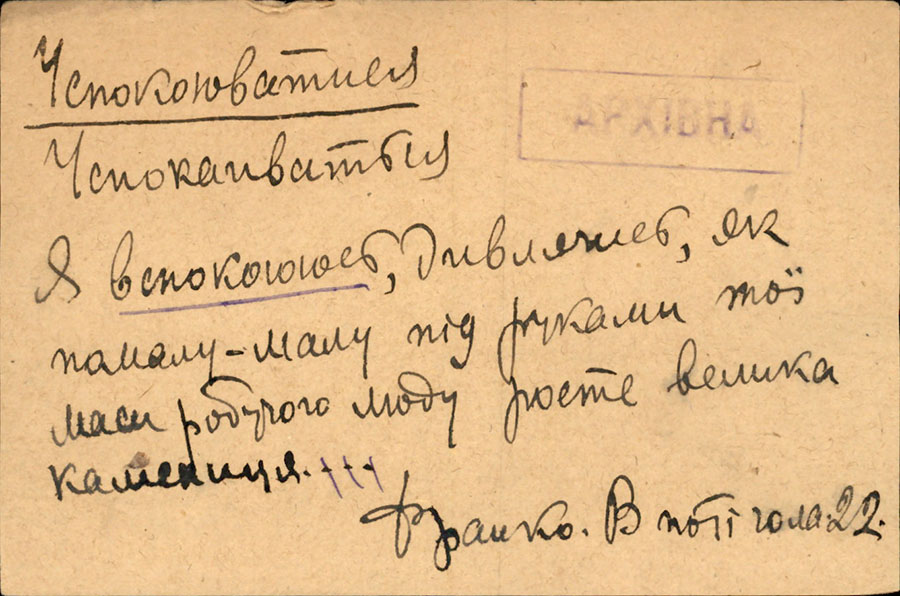 Успокоюватися
АРХІВНА
Успокаиваться
Я вспокоююсь, дивлячись, як
помалу-малу під руками тої
маси робучого люду росте велика
камениця...
Франко. В поті чола. 22.